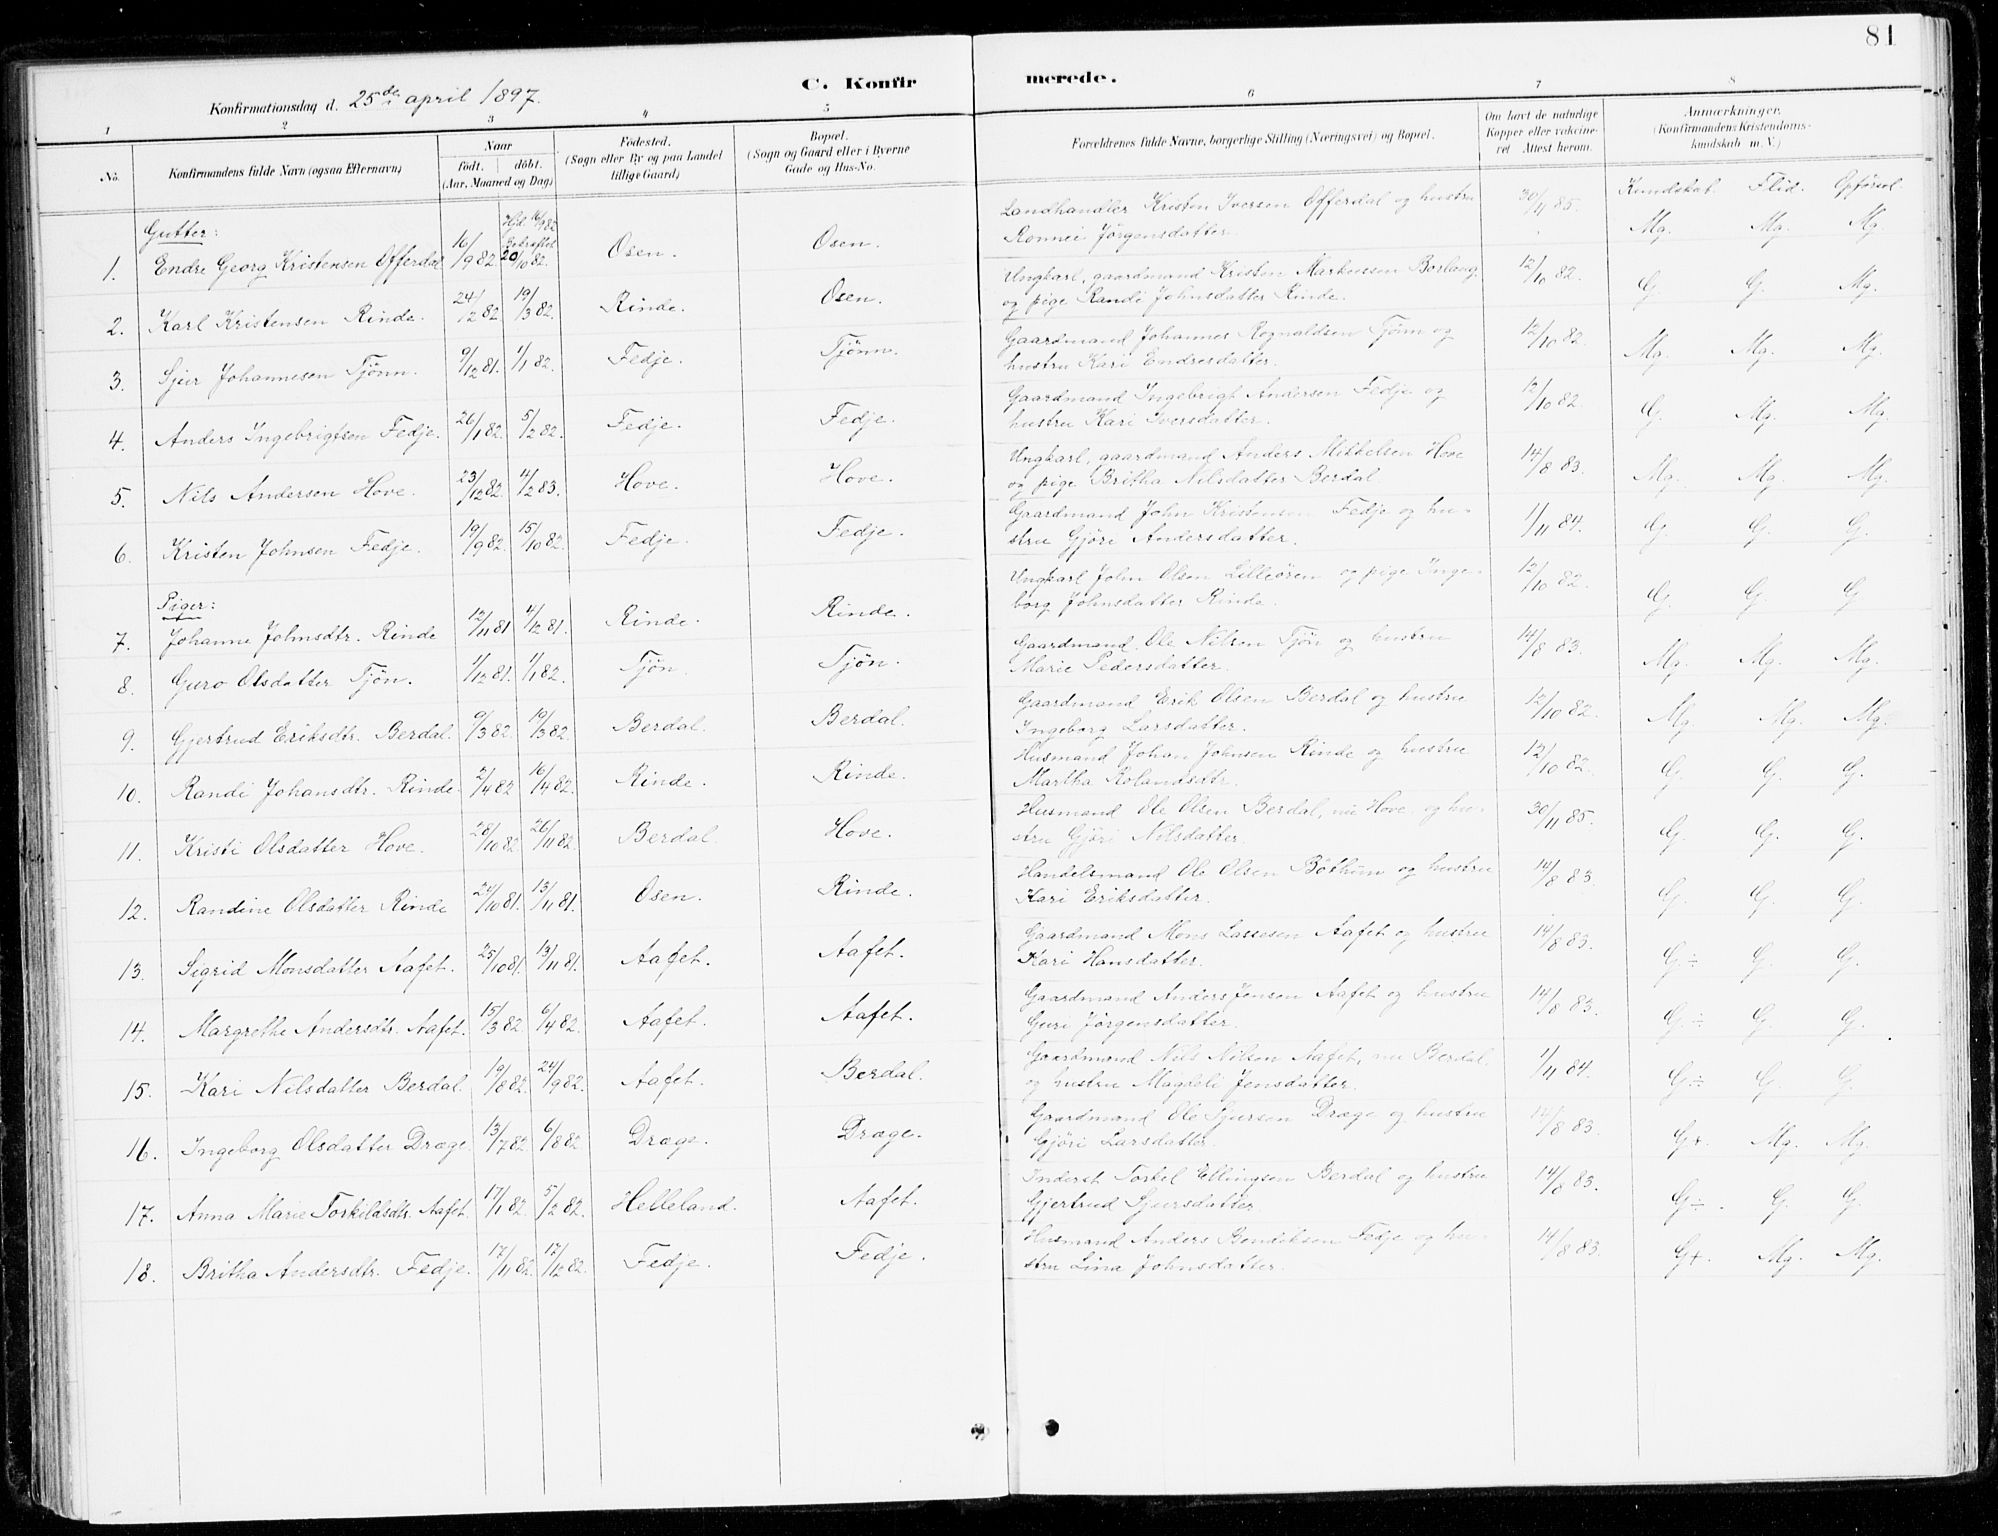 81
C. Konfirmerede.
Konfirmationsdag d. 25de april 1897.
1 2 3 4 5 6 7 8
No. Konfirmandens fulde Navn (ogsaa Efternavn) Naar født. døbt. (Aar, Maaned og Dag) Fødested. (Sogn eller By og paa Landet tillige Gaard) Bopæl. (Sogn og Gaard eller i Byerne Gade og Hus-No. Forældrenes fulde Navne, borgerlige Stilling (Næringsvei) og Bopæl. Om havt de naturlige Kopper eller vaccineret Attest herom. Anmærkninger. (Konfirmandens Kristendomskundskab m. V.)
Kundskab. Flid. Opførsel.
Gutter:
1. Endre Georg Kristensen Offerdal 16/9 82 Hjd. 16/9 82 Bekræftet 20/10 82. Osen. Osen. Landhandler Kristen Iversen Offerdal og hustru Ronnei Jørgensdatter. 30/11 85. Mg. Mg. Mg.
2. Karl Kristensen Rinde. 24/2 82. 19/3 82. Rinde. Osen. Ungkarl, gaardmand Kristen Markussen Borlaug og pige Randi Johnsdatter Rinde. 12/10 82. G. G. Mg.
3. Sjur Johannesen Tjönn. 9/12 81. 1/1 82. Fedje. Tjönn. Gaardmand Johannes Rognaldsen Tjönn og hustru Kari Endresdatter. 12/10 82. Mg. Mg. Mg.
4. Anders Ingebrigtsen Fedje. 26/1 82. 5/2 82. Fedje. Fedje. Gaardmand Ingebrigt Andersen Fedje og hustru Kari Iversdatter. 12/10 82. G. Mg. Mg.
5. Nils Andersen Hove. 23/12 82. 4/2 83. Hove. Hove. Ungkarl, gaardmand Anders Mikkelsen Hove og pige Britha Nilsdatter Berdal. 14/8 83. Mg. Mg. Mg.
6. Kristen Johnsen Fedje. 19/9 82. 15/10 82. Fedje. Fedje. Gaardmand John Kristensen Fedje og hustru Gjøri Andersdatter. 1/11 84. G. G. G.
Piger:
7. Johanne Johnsdtr. Rinde 12/11 81 4/12 81. Rinde. Rinde. Ungkarl John Olsen Lilleören og pige Ingeborg Johnsdatter Rinde. 12/10 82. G. G. G
8. Guro Olsdatter Tjön. 1/12 81. 1/1 82. Tjön Tjön. Gaardmand Ole Nilsen Tjön og hustru Marie Pedersdatter. 14/8 83. Mg. Mg. Mg.
9. Gjertrud Eriksdtr. Berdal. 9/3 82. 19/3 82. Berdal. Berdal. Gaardmand Erik Olsen Berdal og hustru Ingeborg Larsdatter. 12/10 82. Mg. Mg. Mg.
10. Randi Johansdtr. Rinde 2/4 82 16/4 82. Rinde. Rinde. Husmand Johan Johnsen Rinde og hustru Martha Rolandsdtr. 12/10 82. G. G. G.
11. Kristi Olsdatter Hove. 28/10 82. 26/11 82. Berdal. Hove. Husmand Ole Olsen Berdal, nu Hove, og hustru Gjøri Nilsdatter. 30/11 85. G. G. G.
12. Randine Olsdatter Rinde 24/10 81. 13/11 81. Osen. Rinde. Handelsmand Ole Olsen Böthun og hustru Kari Eriksdatter. 14/8 83. G. G. G.
13. Sigrid Monsdatter Aafet. 25/10 81. 13/11 81. Aafet. Aafet. Gaardmand Mons Lassesen Aafet og hustru Kari Hansdatter. 14/8 83. G÷ G. G.
14. Margrethe Andersdtr. Aafet. 15/3 82. 6/4 82. Aafet. Aafet. Gaardmand Anders Jensen Aafet og hustru Guri Jørgensdatter. 14/8 83. G÷ G. G.
15. Kari Nilsdatter Berdal. 19/8 82. 24/9 82. Aafet. Berdal. Gaardmand Nils Nilsen Aafet, nu Berdal. og hustru Magdeli Jensdatter. 1/11 84. G÷ G. G.
16. Ingeborg Olsdatter Dræge 13/7 82. 6/8 82 Dræge. Dræge. Gaardmand Ole Sjursen Dræge og hustru Gjöri Larsdatter. 14/8 83. G+. Mg. Mg.
17. Anna Marie Torkildsdtr. Aafet. 17/1 82. 5/2 82. Helleland. Aafet. Inderst Torkel Ellingsen Berdal og hustru Gjertrud Sjursdatter. 14/8 83. G÷. G. G.
18. Britha Andersdtr. Fedje. 17/11 82. 17/12 82. Fedje. Fedje. Husmand Anders Bendiksen Fedje og hustru Lina Johnsdatter. 14/8 83. G+ Mg. Mg.